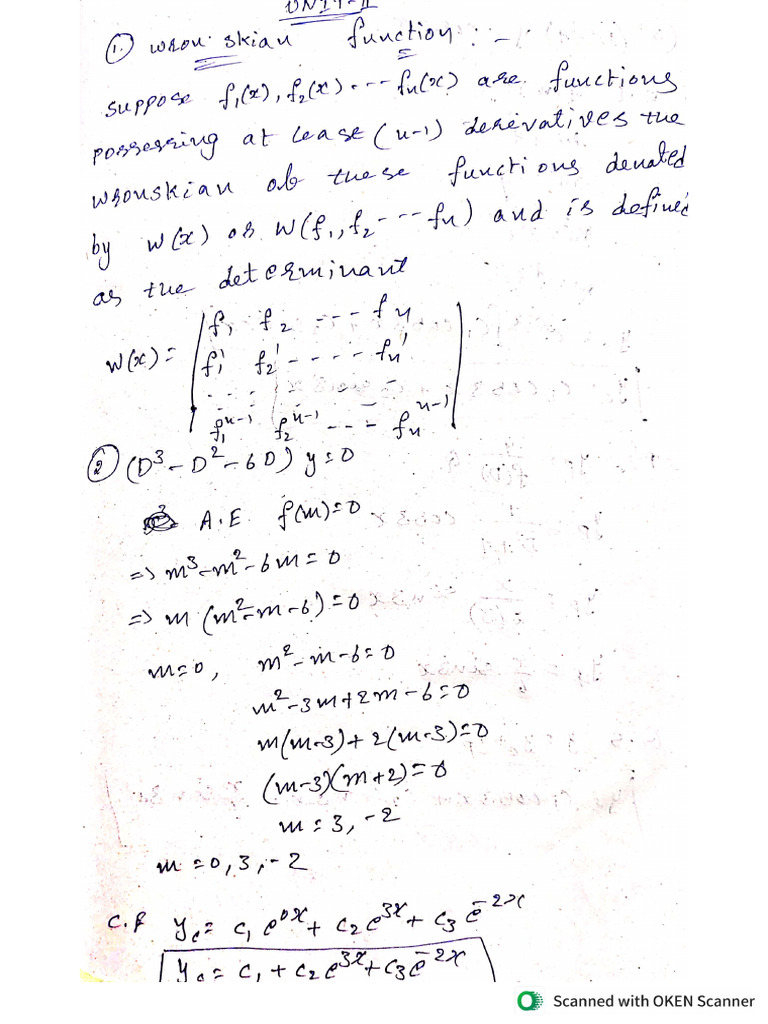 UNIT-II
① wron skian function : -
suppose f₁(x), f₂(x) - - - fn(x) are functions
possessing at lease (n-1) derivatives the
wronskian ob these functions denated
by w(x) or W(f₁, f₂ - - - fn) and is defined
as the determinant
W(x) = | f₁ f₂ - - - fn |
| f₁' f₂' - - - - - fn' |
| f₁ⁿ⁻¹ f₂ⁿ⁻¹ - - - fnⁿ⁻¹ |
② (D³ - D² - 6D) y = 0
A.E. f(m) = 0
=> m³ - m² - 6m = 0
=> m (m² - m - 6) = 0
m = 0, m² - m - 6 = 0
m² - 3m + 2m - 6 = 0
m(m-3) + 2(m-3) = 0
(m-3)(m+2) = 0
m = 3, -2
m = 0, 3, -2
C.f y_c = c₁ e^{0x} + c₂ e^{3x} + c₃ e^{-2x}
y_c = c₁ + c₂ e^{3x} + c₃ e^{-2x}
Scanned with OKEN Scanner